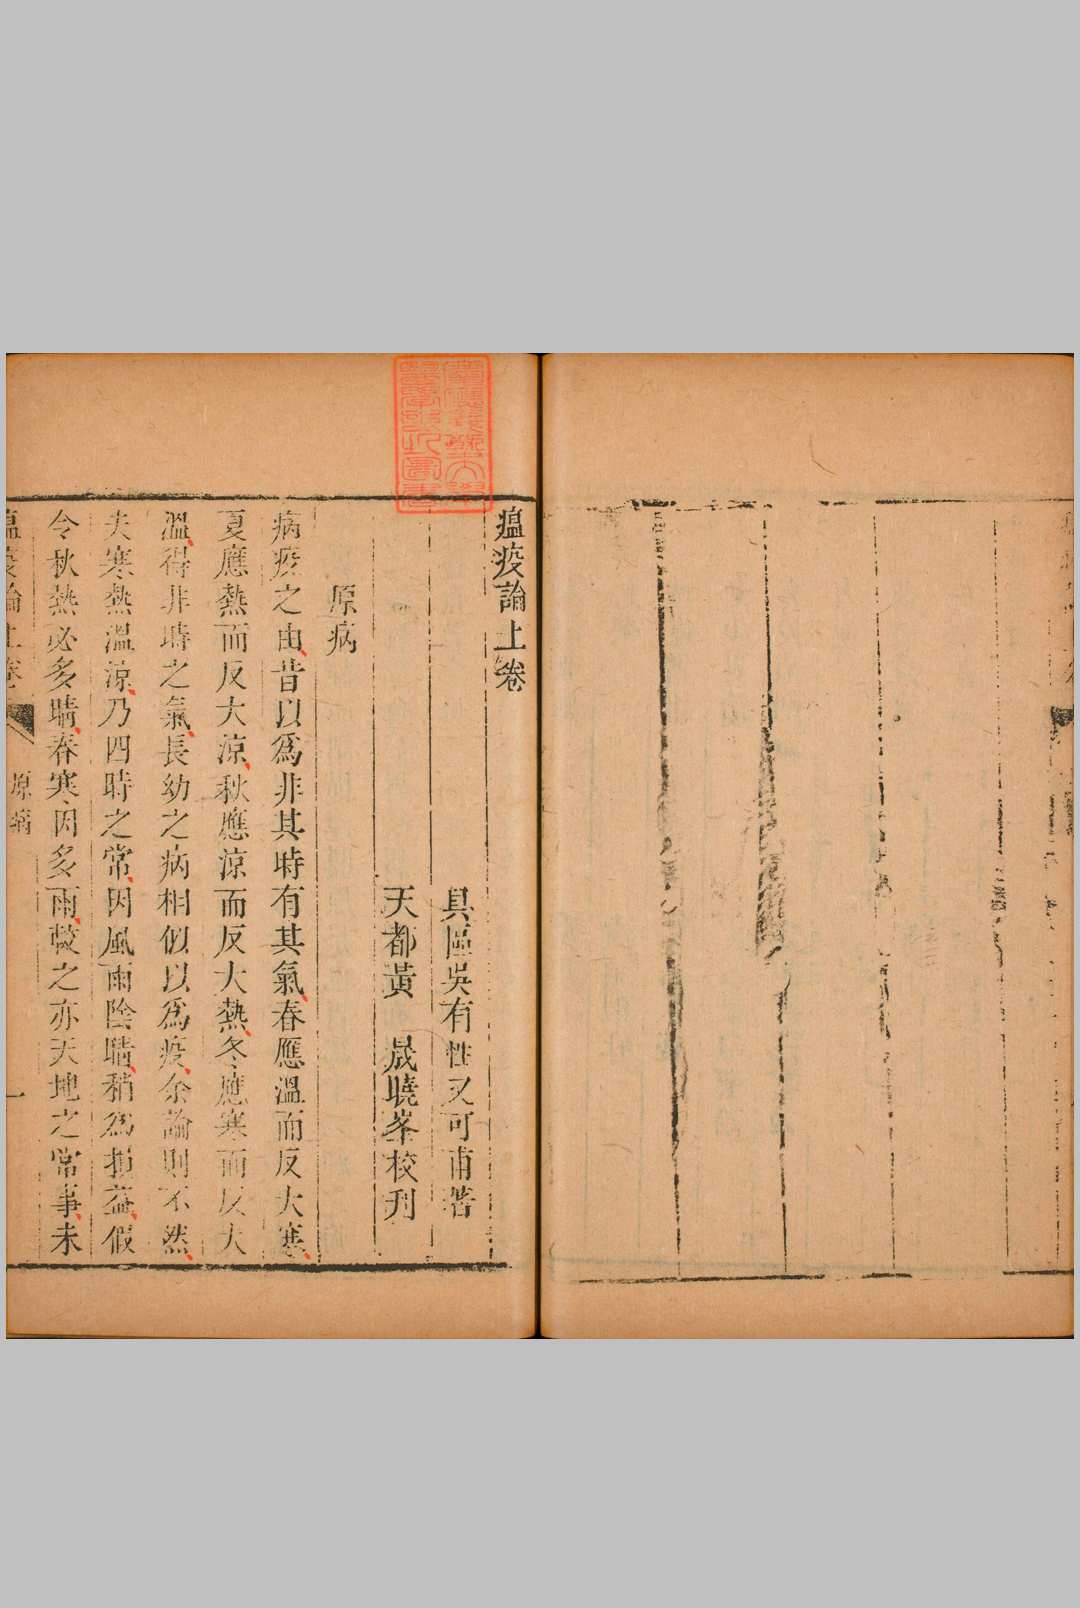 瘟疫論上卷
具區吳有性又可甫著
天都黃　晟曉峯校刋
原病
病疫之由昔以爲非其時有其氣春應溫而反大寒
夏應熱而反大涼秋應涼而反大熱冬應寒而反大
溫得非時之氣長幼之病相似以爲疫余論則不然
夫寒熱溫涼乃四時之常因風雨陰晴稍爲損益假
令秋熱必多晴春寒因多雨較之亦天地之常事未
瘟疫論上卷　原病　一